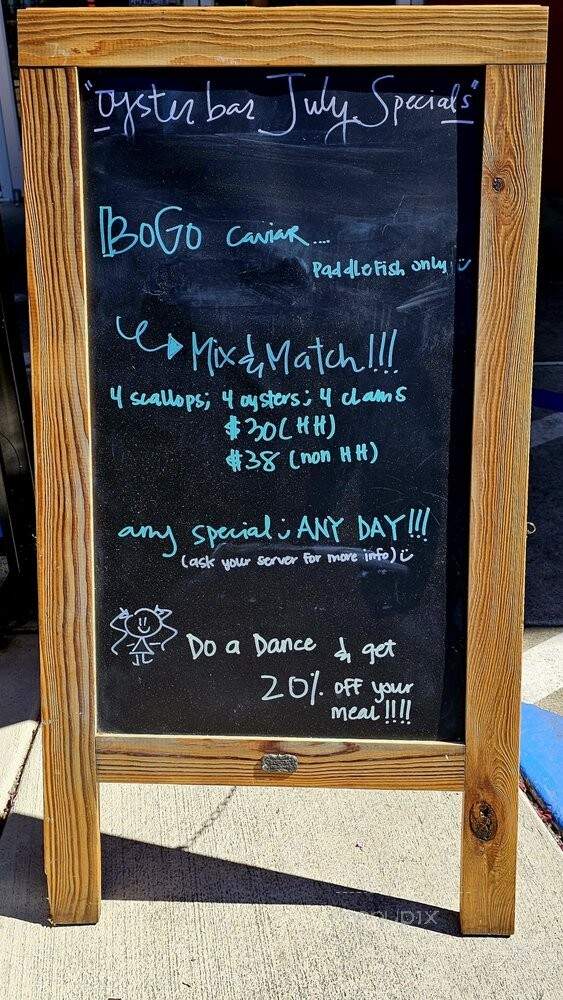 "Oyster bar July Specials"
BOGO caviar....
Paddlefish only! :)
Mix & Match!!!
4 scallops; 4 oysters; 4 clams
$30 (HH)
$38 (non HH)
any special :) ANY DAY!!!
(ask your server for more info) :)
Do a Dance & get
20% off your
meal!!!!